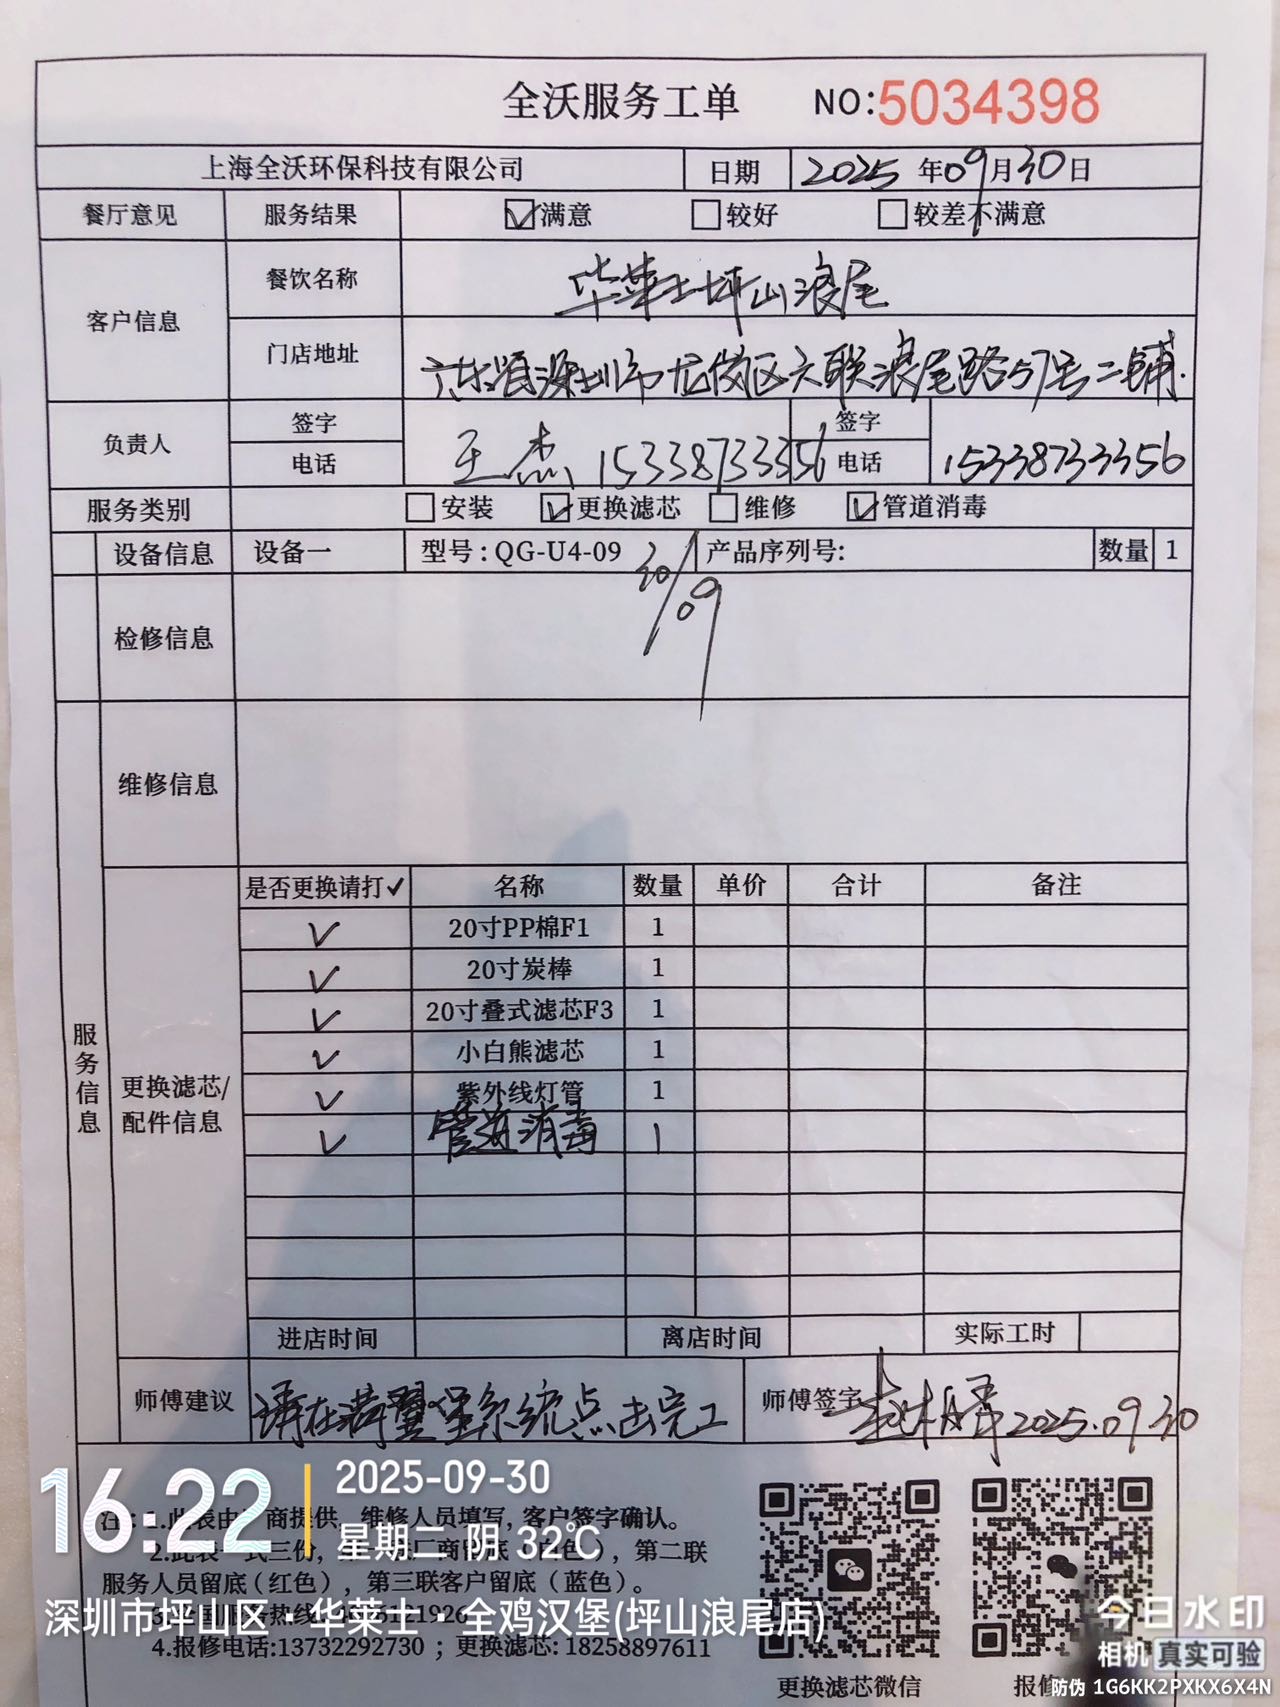 全沃服务工单 NO:5034398
上海全沃环保科技有限公司 日期 2025年09月30日
餐厅意见 服务结果 ☑满意 □较好 □较差不满意
客户信息 餐饮名称 华莱士坪山浪尾
门店地址 广东省深圳市龙岗区六联浪尾路57号二铺.
负责人 签字 电话 王杰 15338733356 签字 电话 15338733356
服务类别 □安装 ☑更换滤芯 □维修 ☑管道消毒
设备信息 设备一 型号:QG-U4-09 产品序列号: 数量 1
30/09
检修信息
维修信息
服务信息
更换滤芯/配件信息
是否更换请打✓ 名称 数量 单价 合计 备注
✓ 20寸PP棉F1 1
✓ 20寸炭棒 1
✓ 20寸叠式滤芯F3 1
✓ 小白熊滤芯 1
✓ 紫外线灯管 1
✓ 管道消毒 1
进店时间 离店时间 实际工时
师傅建议 请在满翼堡系统点击完工 师傅签字 2025.09.30
注: 1.此表由 商提供, 维修人员填写, 客户签字确认。
2.此表一式三份, 第二联
服务人员留底(红色), 第三联客户留底(蓝色)。
4.报修电话:13732292730 ; 更换滤芯: 18258897611
更换滤芯微信
报修
16:22
2025-09-30
星期二 阴 32℃
深圳市坪山区·华莱士·全鸡汉堡(坪山浪尾店)
今日水印
相机 真实可验
防伪 1G6KK2PXKX6X4N